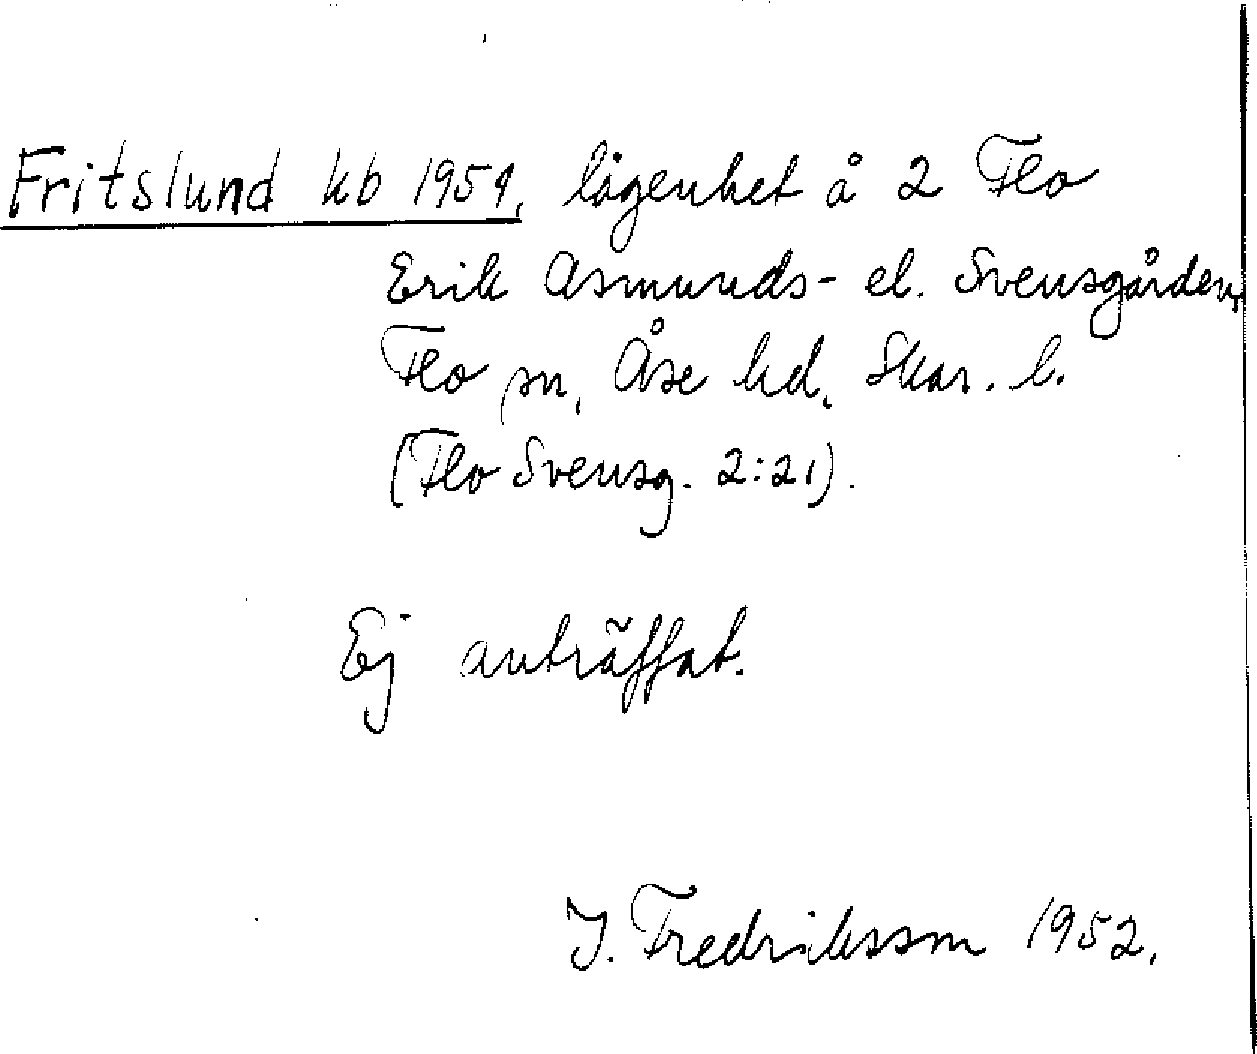 Fritslund kb 1951, lägenhet å 2 Flo
Erik Asmunds- el. Svensgården,
Flo sn, Åse hd, Skar. l.
(Flo Svensg. 2:21).
Ej anträffat.
J. Fredriksson 1952.